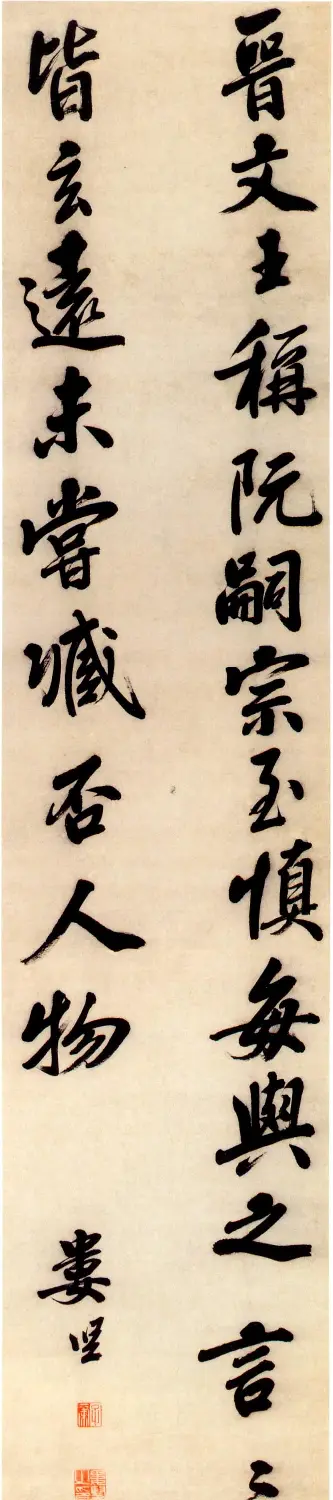 晉文王稱阮嗣宗至慎每與之言〻
皆玄遠未嘗臧否人物
婁堅